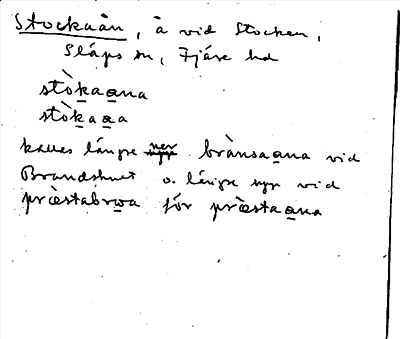 Stockaån, å vid Stocken,
Släps sn, Fjäre hd
stòkaana
stòkaaa
kallas längre ner brànsaana vid
Brandshult o. längre upp vid
præ̀stabrωa för præ̀staana